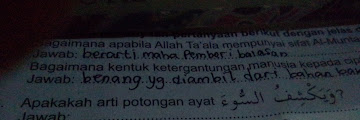 pertanyaan berikut dengan jelas d
Bagaimana apabila Allah Ta'ala mempunyai sifat Al-Mun
Jawab: berarti maha Pemberi balasan
Bagaimana kentuk ketergantungan manusia kepada
Jawab: benang yg diambil dari bahan
Apakakah arti potongan ayat وَيَكْشِفُ السُّوءَ؟
Jawab: